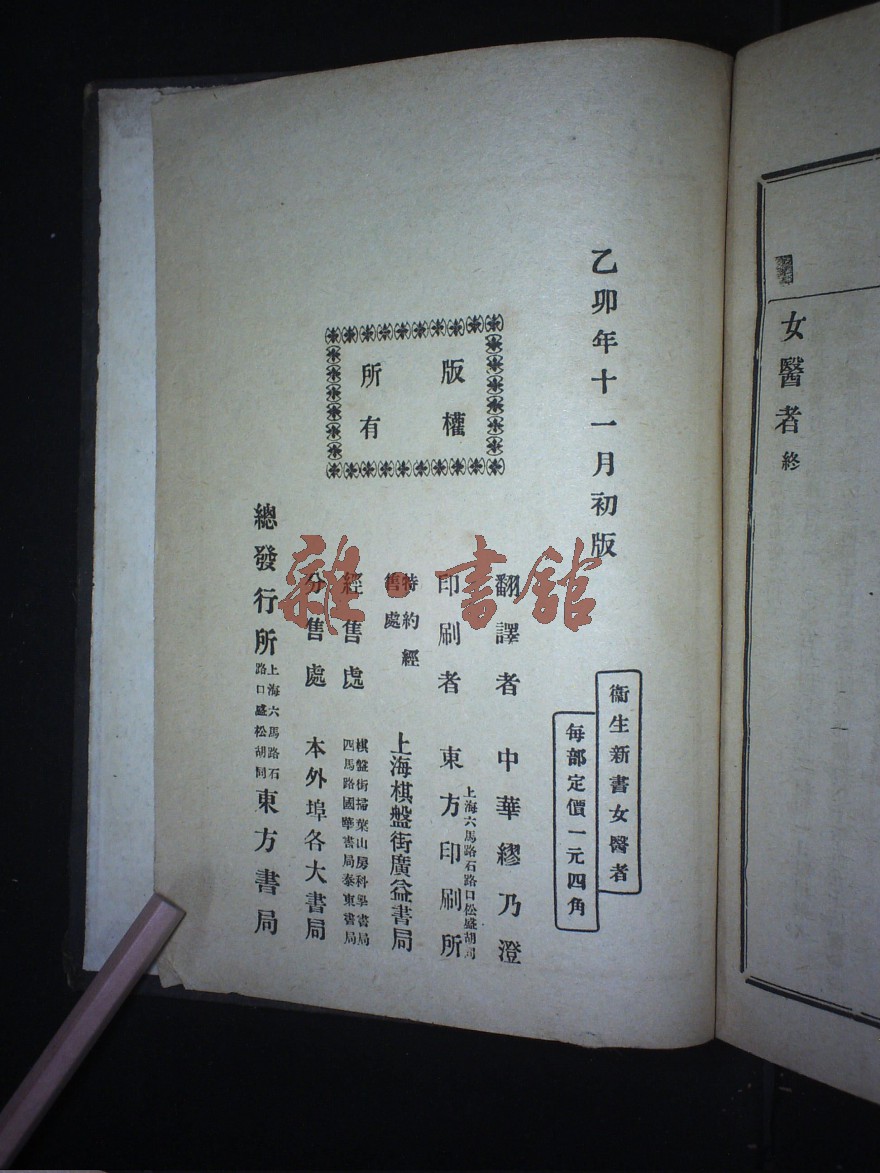 女醫者終
乙卯年十一月初版
衞生新書女醫者
每部定價一元四角
版權
所有
翻譯者 中華繆乃澄
印刷者 上海六馬路石路口松盛胡同 東方印刷所
特約經
售處 上海棋盤街廣益書局
經售處 棋盤街掃葉山房科學書局
四馬路國華書局泰東書局
分售處 本外埠各大書局
總發行所 上海六馬路石
路口盛松胡同 東方書局
雜·書館